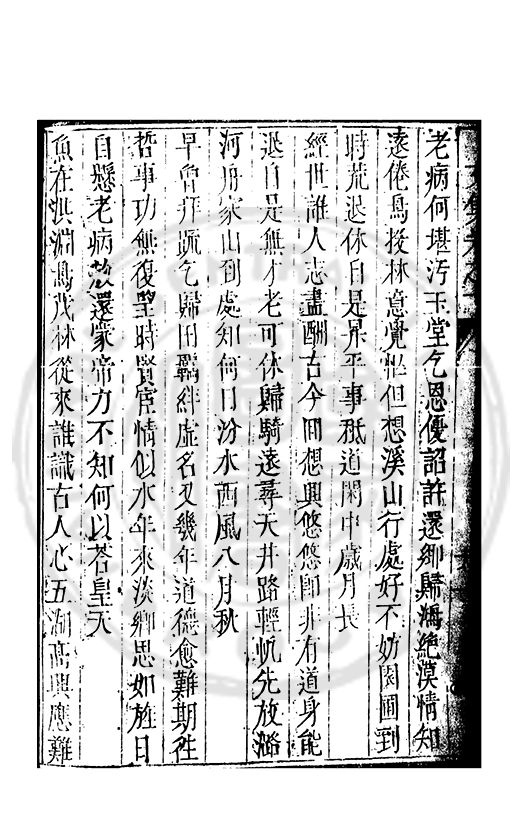 老病何堪汚玉堂乞恩優詔許還鄉歸鴻絶漠情知
遠倦鳥投林意覺忙但想溪山行處好不妨園圃到
時荒退休自是昇平事秪道閑中歲月長
經世誰人志盡酬古今回想興悠悠卽非有道身能
退自是無才老可休歸騎遠尋天井路輕帆先放潞
河舟家山到處知何日汾水西風八月秋
早曾拜疏乞歸田羈絆虛名又幾年道德愈難期徃
哲事功無復望時賢宦情似水年來淡鄉思如旌日
自懸老病放還蒙帝力不知何以荅皇天
魚在洪淵鳥茂林從來誰識古人心五湖高興應難